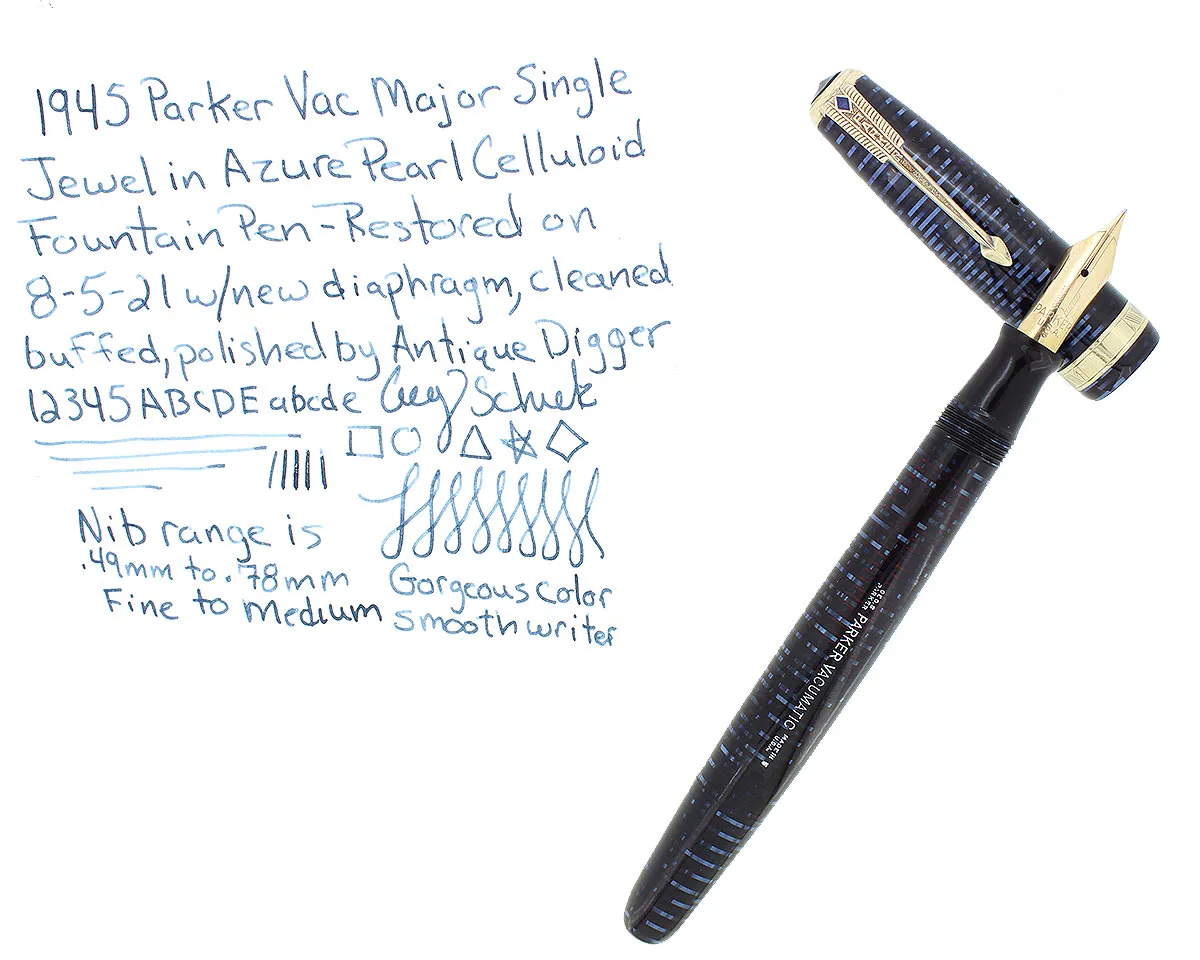 1945 Parker Vac Major Single
Jewel in Azure Pearl Celluloid
Fountain Pen-Restored on
8-5-21 w/new diaphragm, cleaned
buffed, polished by Antique Digger
12345 ABCDE abcde
Nib range is
.49mm to .78mm
Fine to medium
Gorgeous color
smooth writer
PARKER
PARKER VACUMATIC
MADE IN
U.S.A.